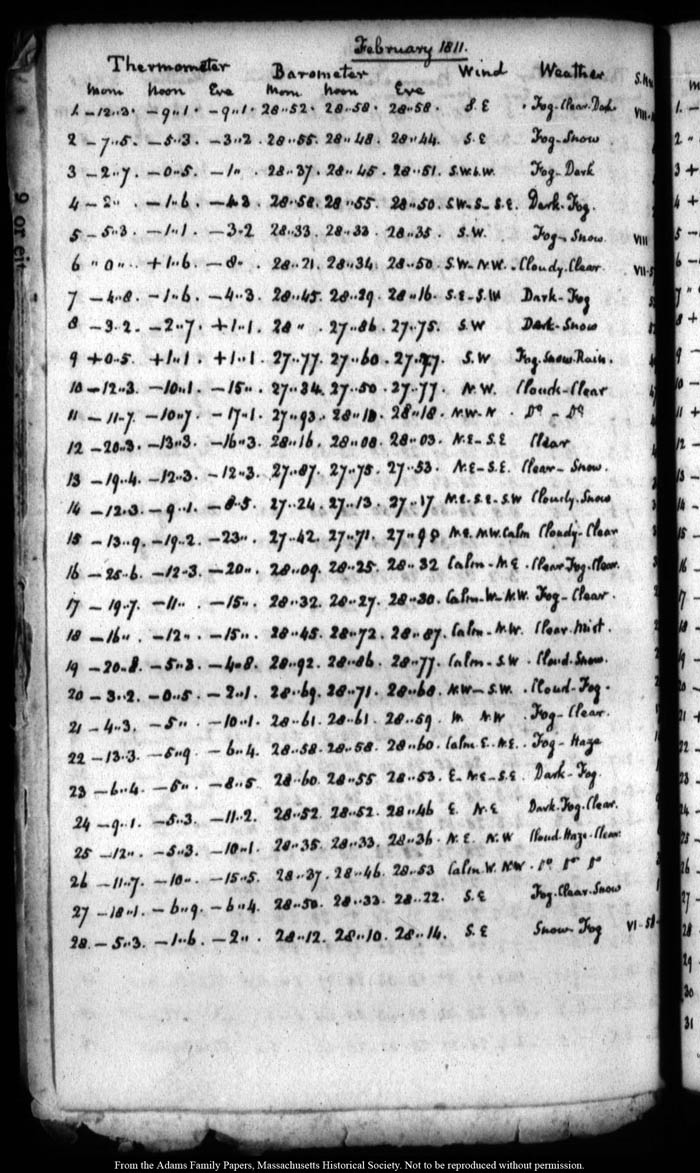 February 1811.
Thermometer Barometer Wind Weather
Morn Noon Eve Morn Noon Eve
1 -12..3. -9..1. -9..1. 28..52. 28..58. 28..58. S.E Fog-Clear-Dark VIII
2 -7..5. -5..3 -3..2 28..55. 28..48. 28..44. S.E Fog-Snow
3 -2..7. -0..5. -1.. 28..37. 28..45. 28..51. S.W.b.W. Fog-Dark
4 -2.. -1..6. 28..58. 28..55 28..50. S.W-S-S.E. Dark-Fog.
5 -5..3 -1..1 -3..2 28..33. 28..33. 28..35. S.W. Fog-Snow. VIII
6 ..0.. +1..6 -8.. 28..21. 28..34. 28..50. S.W-N.W. Cloudy.Clear. VII-5
7 -4..8. -1..6. -4..3. 28..45. 28..29. 28..16. S.E-S.W Dark-Fog
8 -3..2. -2..7. +1..1. 28.. 27..86. 27..75. S.W Dark-Snow
9 +0..5. +1..1. +1..1. 27..77. 27..60. S.W Fog.Snow.Rain.
10 -12..3. -10..1. -15.. 27..34. 27..50. 27..77. N.W. Cloud-Clear
11 -11..7. -10..7. -17..1. 27..93. 28..10. 28..18. N.W-N Do - Do
12 -20..3. -13..3. -16..3. 28..16. 28..08. 28..03. N.E-S.E Clear
13 -19..4. -12..3. -12..3. 27..87. 27..75. 27..53. N.E-S.E. Clear-Snow.
14 -12..3. -9..1. -8..5. 27..24. 27..13. 27..17 N.E.S.E-S.W Cloudy.Snow
15 -13..9. -19..2. -23.. 27..42. 27..71. 27..98 N.E. N.W.Calm Cloudy-Clear
16 -25..6. -12..3. -20.. 28..09. 28..25. 28..32 Calm-N.E. Clear.Fog.Clear.
17 -19..7. -11.. -15.. 28..32. 28..27. 28..30. Calm-W-N.W. Fog-Clear.
18 -16.. -12.. -15.. 28..45. 28..72. 28..87. Calm-N.W. Clear.Mist.
19 -20..8. -5..3. -4..8. 28..92. 28..86. 28..77. Calm-S.W Cloud.Snow.
20 -3..2. -0..5. -2..1. 28..69. 28..71. 28..68. N.W-S.W. Cloud-Fog.
21 -4..3. -5.. -10..1. 28..61. 28..61. 28..59. W NW Fog-Clear.
22 -13..3. -5..9. -6..4. 28..58. 28..58. 28..60. Calm.E. N.E. Fog-Haze
23 -6..4. -5.. -8..5. 28..60. 28..55 28..53. E-N.E-S.E. Dark-Fog.
24 -9..1. -5..3. -11..2. 28..52. 28..52. 28..46 E. N.E Dark.Fog.Clear.
25 -12.. -5..3. -10..1. 28..35. 28..33. 28..36. N.E. N.W Cloud.Haze.Clear.
26 -11..7. -10.. -15..5. 28..37. 28..46. 28..53 Calm.W.N.W. Do Do Do
27 -18..1. -6..9. -6..4. 28..50. 28..33. 28..22. S.E Fog.Clear.Snow
28. -5..3. -1..6. -2.. 28..12. 28..10. 28..14. S.E Snow-Fog VI-58
9 or eit
From the Adams Family Papers, Massachusetts Historical Society. Not to be reproduced without permission.